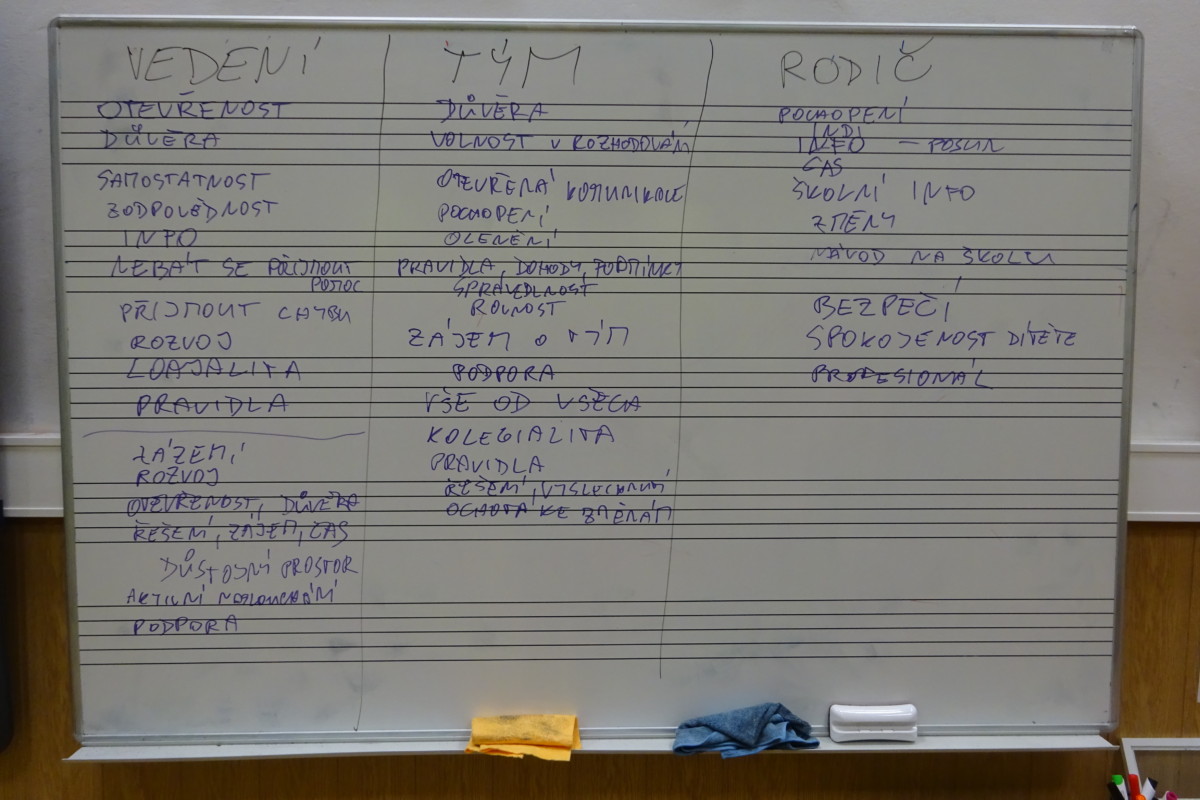 VEDENÍ
OTEVŘENOST
DŮVĚRA
SAMOSTATNOST
ZODPOVĚDNOST
INFO
NEBÁT SE PŘIJMOUT
POMOC
PŘIJMOUT CHYBU
ROZVOJ
LOAJALITA
PRAVIDLA
ZÁZEMÍ
ROZVOJ
OTEVŘENOST, DŮVĚRA
ŘEŠENÍ, ZÁJEM, ČAS
DŮSTOJNÝ PROSTOR
AKTIVNÍ NASLOUCHÁNÍ
PODPORA
TÝM
DŮVĚRA
VOLNOST V ROZHODOVÁNÍ
OTEVŘENÁ KOMUNIKACE
POCHOPENÍ
OCENĚNÍ
PRAVIDLA, DOHODY, PODMÍNKY
SPRAVEDLNOST
ROVNOST
ZÁJEM O TÝM
PODPORA
VŠE OD VŠECH
KOLEGIALITA
PRAVIDLA
ŘEŠENÍ, VYSLECHNUTÍ
OCHOTA KE ZMĚNÁM
RODIČ
POCHOPENÍ
INDI
INFO – POSUN
ČAS
ŠKOLNÍ INFO
ZMĚNY
NÁVOD NA ŠKOLU
BEZPEČÍ
SPOKOJENOST DÍTĚTE
PROFESIONÁL